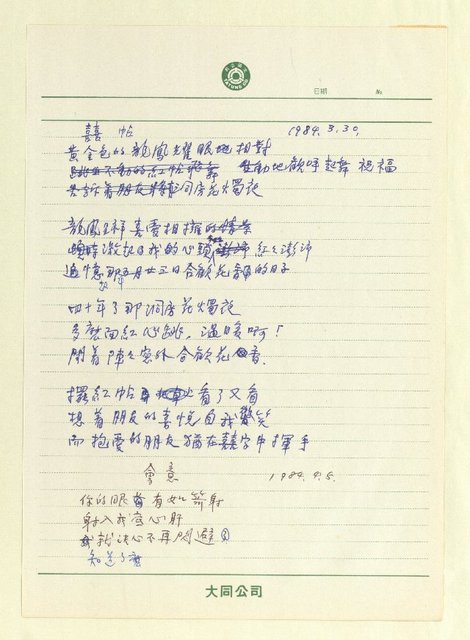 日期 №
囍帖 1984.3.30.
黃金色的龍鳳耀眼地相對
生動地歡呼起舞 祝福
告訴着朋友 洞房花燭夜
龍鳳呈祥喜憂相擁的情景
激起了我的心頭 紅紅澎沛
追憶那年五月廿三日合歡花香的日子
四十年了那洞房花燭夜
多麼面紅心跳，溫暖啊！
聞着陣陣窓外合歡花香．
擺紅帖 看了又看
想着朋友的喜悅自我歡笑
而抱愛的朋友猶在囍字中揮手
會意 1984.4.5.
你的眼 有如箭射
射入我 心肝
我就決心不再閃避
知道了
大同公司